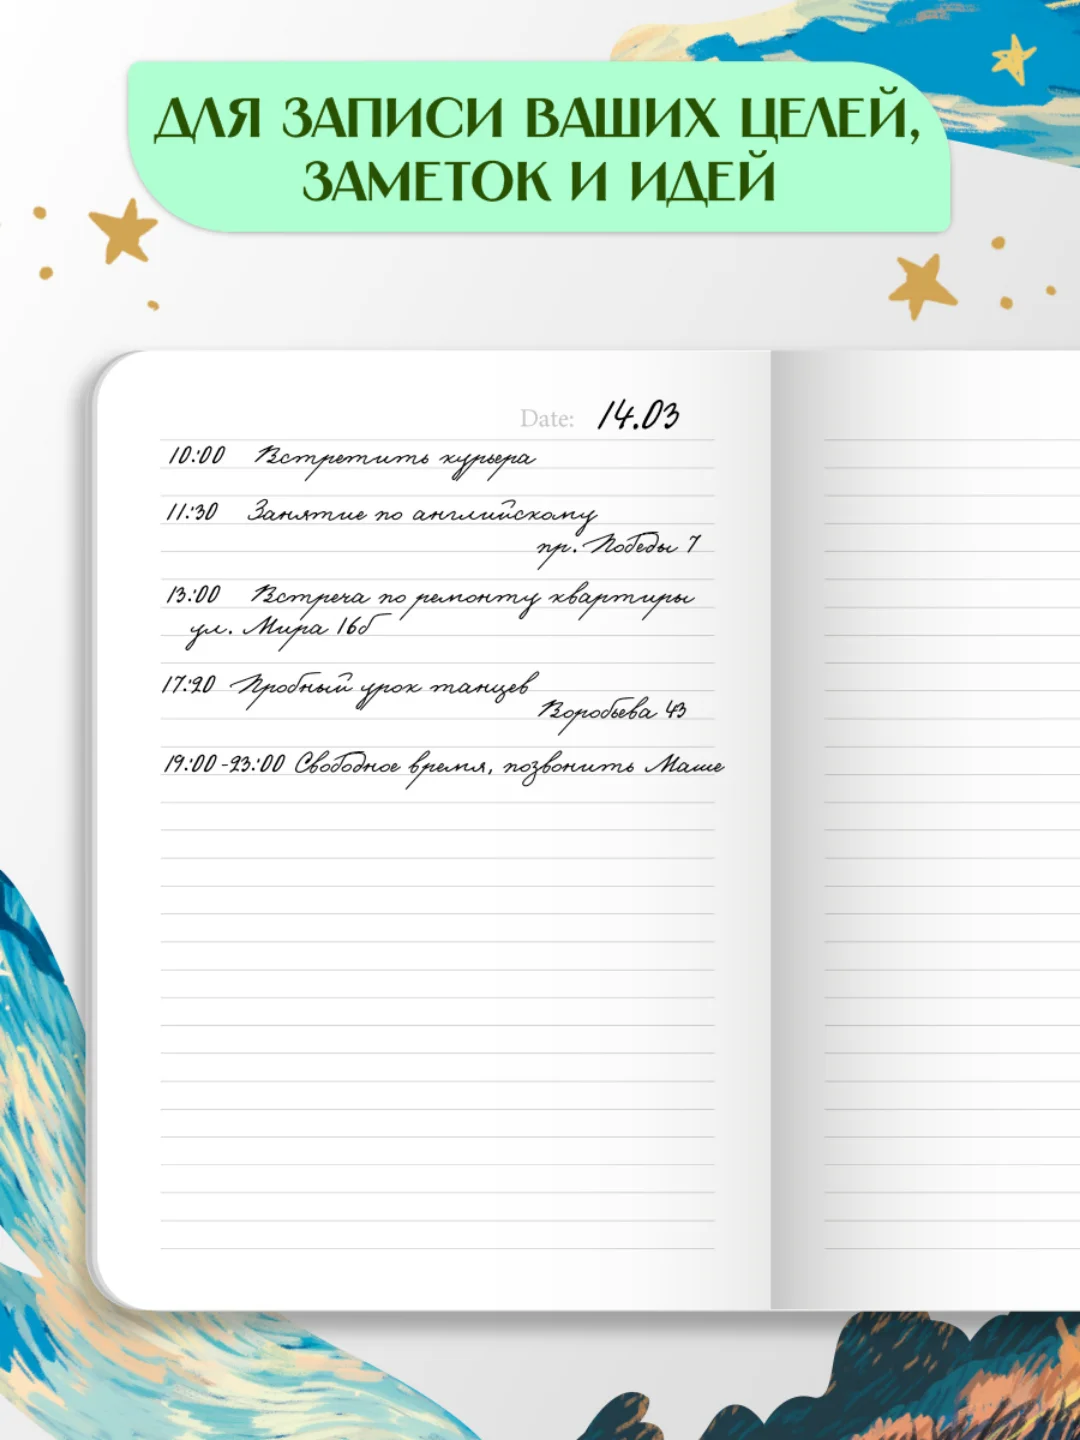 ДЛЯ ЗАПИСИ ВАШИХ ЦЕЛЕЙ,
ЗАМЕТОК И ИДЕЙ
Date: 14.03
10:00 Встретить курьера
11:30 Занятие по английскому
пр. Победы 7
13:00 Встреча по ремонту квартиры
ул. Мира 16б
17:20 Пробный урок танцев
Воробьева 43
19:00-23:00 Свободное время, позвонить Маше